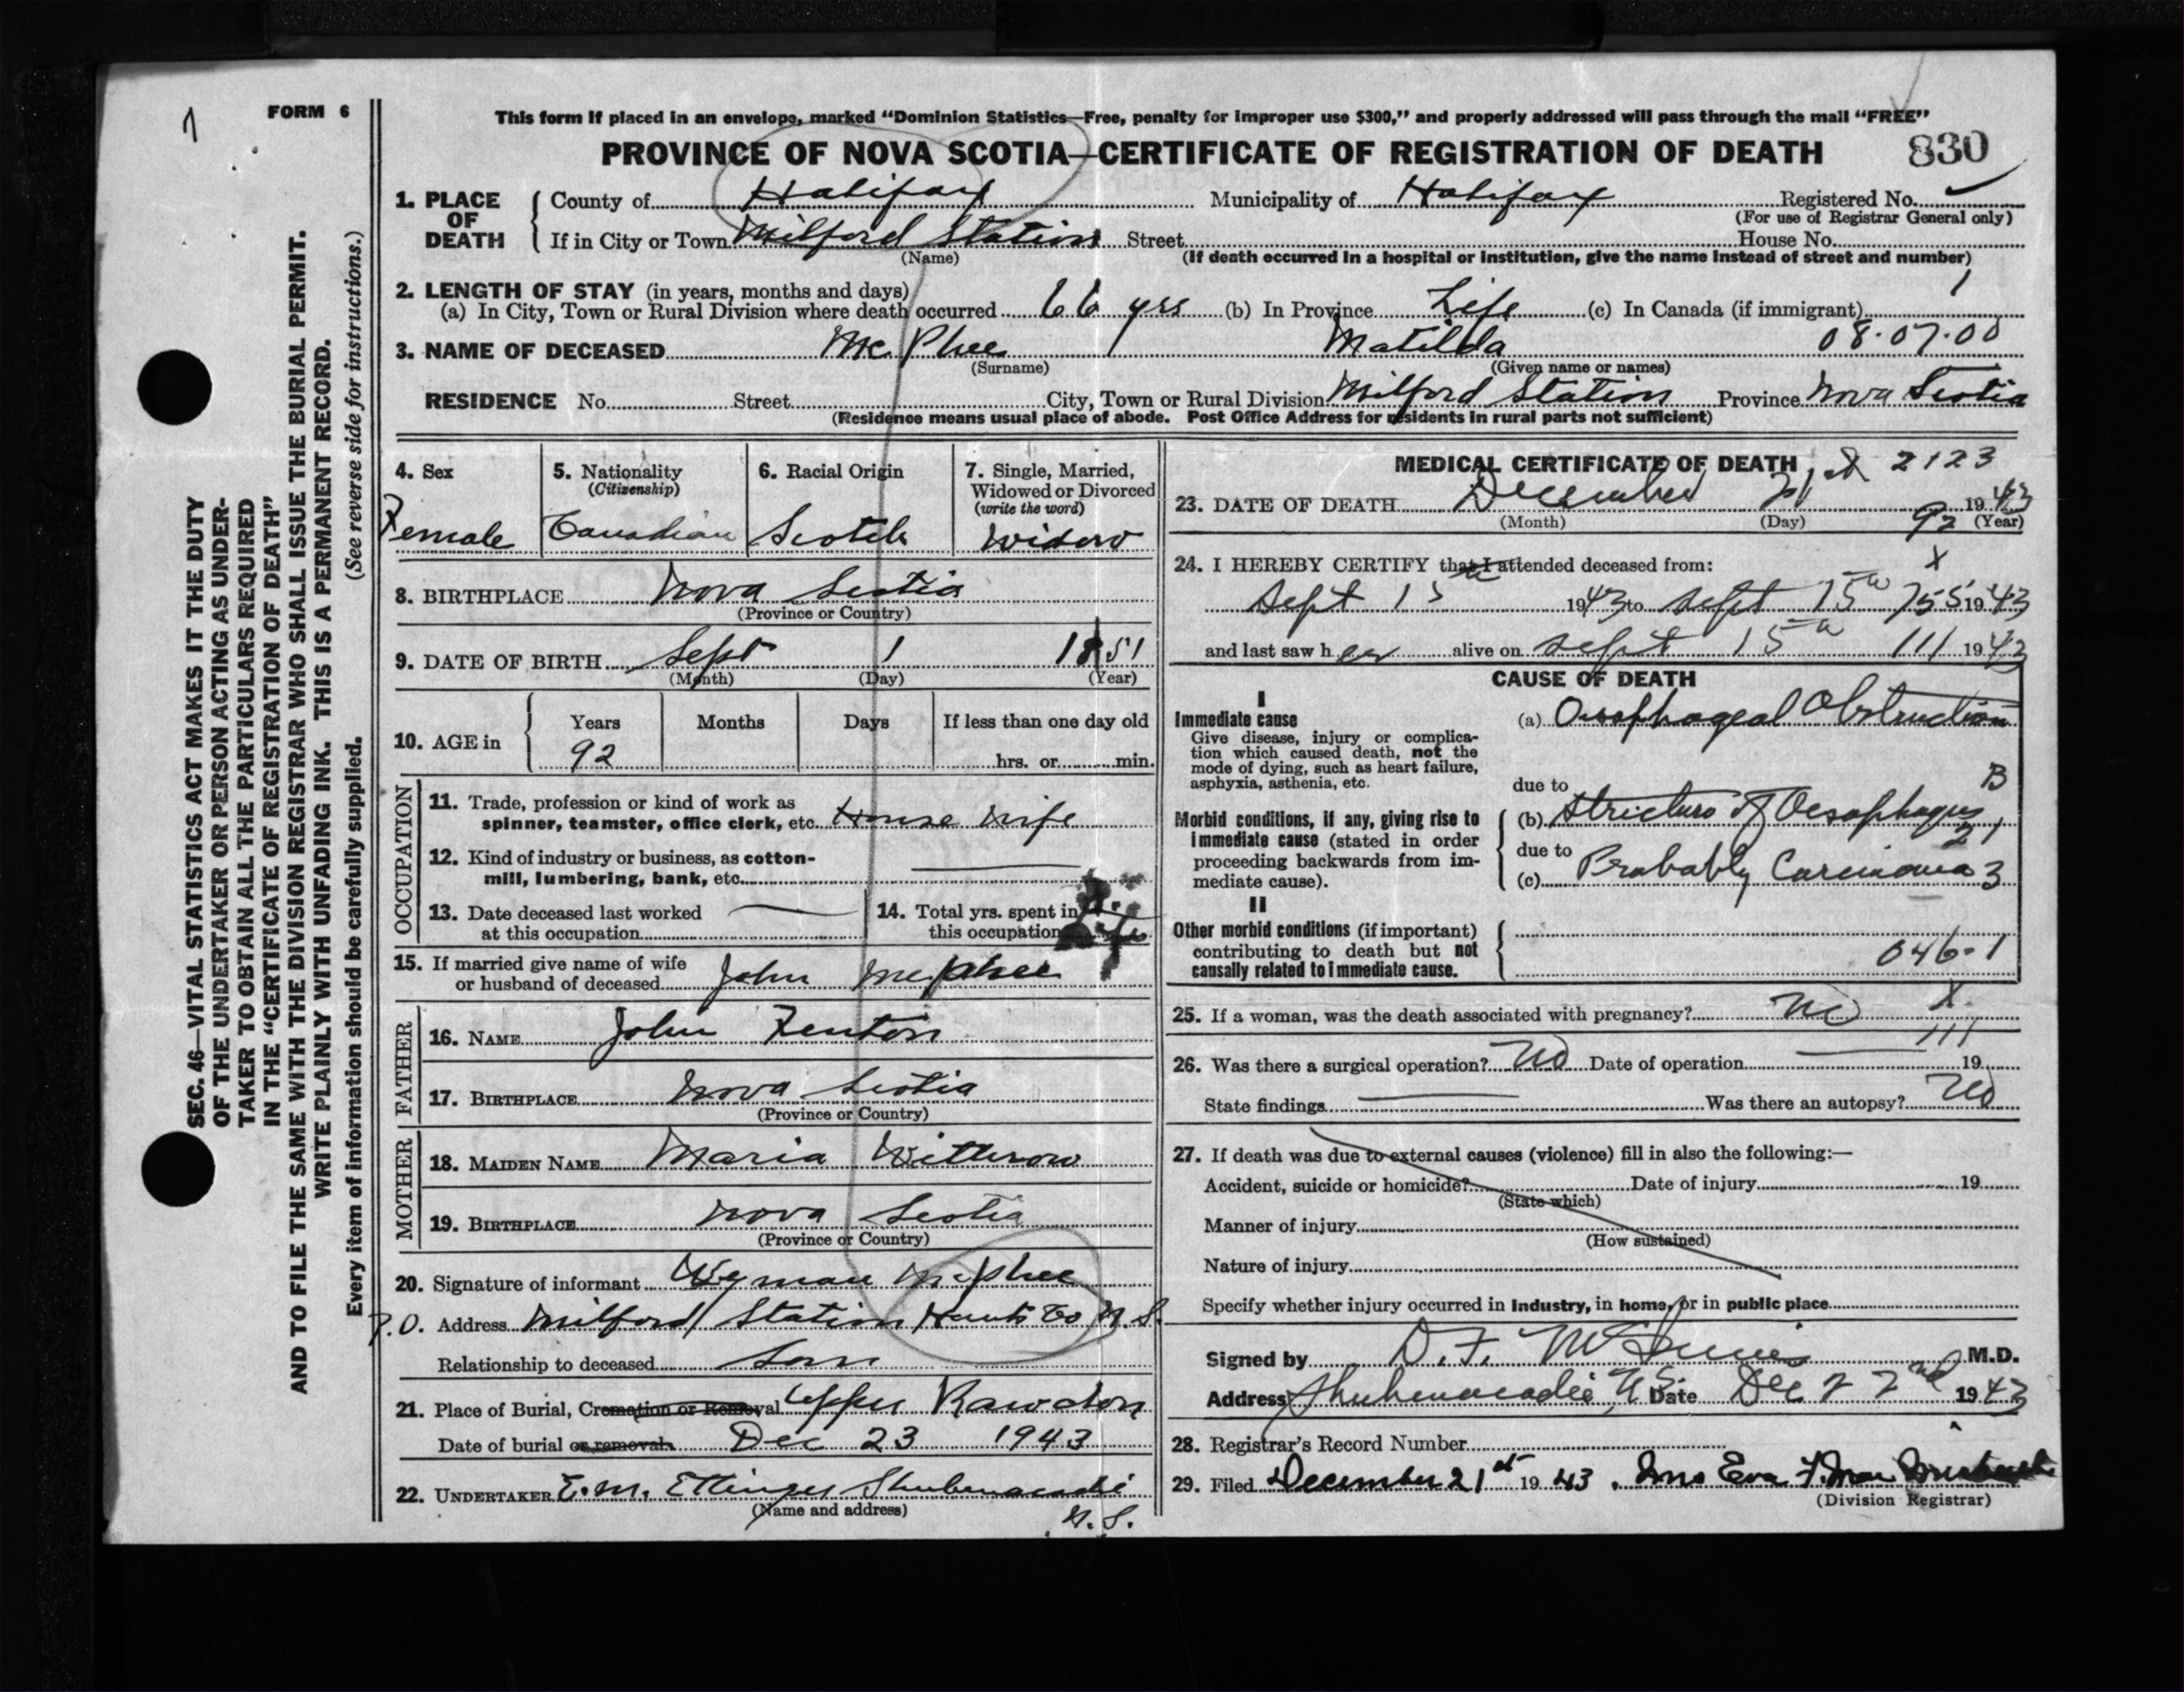 7
FORM 6
SEC. 46—VITAL STATISTICS ACT MAKES IT THE DUTY
OF THE UNDERTAKER OR PERSON ACTING AS UNDER-
TAKER TO OBTAIN ALL THE PARTICULARS REQUIRED
IN THE "CERTIFICATE OF REGISTRATION OF DEATH"
AND TO FILE THE SAME WITH THE DIVISION REGISTRAR WHO SHALL ISSUE THE BURIAL PERMIT.
WRITE PLAINLY WITH UNFADING INK. THIS IS A PERMANENT RECORD.
Every item of information should be carefully supplied. (See reverse side for instructions.)
This form if placed in an envelope, marked "Dominion Statistics—Free, penalty for improper use $300," and properly addressed will pass through the mail "FREE"
PROVINCE OF NOVA SCOTIA—CERTIFICATE OF REGISTRATION OF DEATH 830
1. PLACE OF DEATH County of Halifax Municipality of Halifax Registered No.
(For use of Registrar General only)
If in City or Town Milford Station Street House No.
(Name) (If death occurred in a hospital or institution, give the name instead of street and number)
2. LENGTH OF STAY (in years, months and days) 1
(a) In City, Town or Rural Division where death occurred 66 yrs (b) In Province Life (c) In Canada (if immigrant)
3. NAME OF DECEASED McPhee Matilda 08.07.00
(Surname) (Given name or names)
RESIDENCE No. Street City, Town or Rural Division Milford Station Province Nova Scotia
(Residence means usual place of abode. Post Office Address for residents in rural parts not sufficient)
4. Sex Female
5. Nationality (Citizenship) Canadian
6. Racial Origin Scotch
7. Single, Married, Widowed or Divorced (write the word) Widow
8. BIRTHPLACE Nova Scotia
(Province or Country)
9. DATE OF BIRTH Sept 1 1851
(Month) (Day) (Year)
10. AGE in Years Months Days If less than one day old
92 hrs. or min.
OCCUPATION
11. Trade, profession or kind of work as
spinner, teamster, office clerk, etc. House Wife
12. Kind of industry or business, as cotton-
mill, lumbering, bank, etc.
13. Date deceased last worked
at this occupation
14. Total yrs. spent in
this occupation
15. If married give name of wife
or husband of deceased John McPhee
FATHER
16. NAME John Fenton
17. BIRTHPLACE Nova Scotia
(Province or Country)
MOTHER
18. MAIDEN NAME Maria Witherow
19. BIRTHPLACE Nova Scotia
(Province or Country)
20. Signature of informant Wyman McPhee
P.O. Address Milford Station Hants Co N.S.
Relationship to deceased Son
21. Place of Burial, Cremation or Removal Upper Rawdon
Date of burial or removal Dec 23 1943
22. UNDERTAKER E.M. Ettinger Shubenacadie
(Name and address) N.S.
MEDICAL CERTIFICATE OF DEATH 2123
23. DATE OF DEATH December 21st 1943
(Month) (Day) (Year)
92
24. I HEREBY CERTIFY that I attended deceased from: X
Sept 15 1943 to Sept 15th 755 1943
and last saw her alive on Sept 15th 111 1943
CAUSE OF DEATH
I
Immediate cause
Give disease, injury or complica-
tion which caused death, not the
mode of dying, such as heart failure,
asphyxia, asthenia, etc.
(a) Oesophageal Obstruction
due to B
Morbid conditions, if any, giving rise to
immediate cause (stated in order
proceeding backwards from im-
mediate cause).
(b) Stricture of Oesophagus
due to
(c) Probably Carcinoma 3
II
Other morbid conditions (if important)
contributing to death but not
causally related to immediate cause.
046-1
25. If a woman, was the death associated with pregnancy? No X
111
26. Was there a surgical operation? No Date of operation 19
State findings Was there an autopsy? No
27. If death was due to external causes (violence) fill in also the following:—
Accident, suicide or homicide? Date of injury 19
(State which)
Manner of injury
(How sustained)
Nature of injury
Specify whether injury occurred in industry, in home, or in public place
Signed by D.F. M.D.
Address Shubenacadie N.S. Date Dec 22nd 1943
28. Registrar's Record Number
29. Filed December 21st 1943. Mrs Eva F.
(Division Registrar)